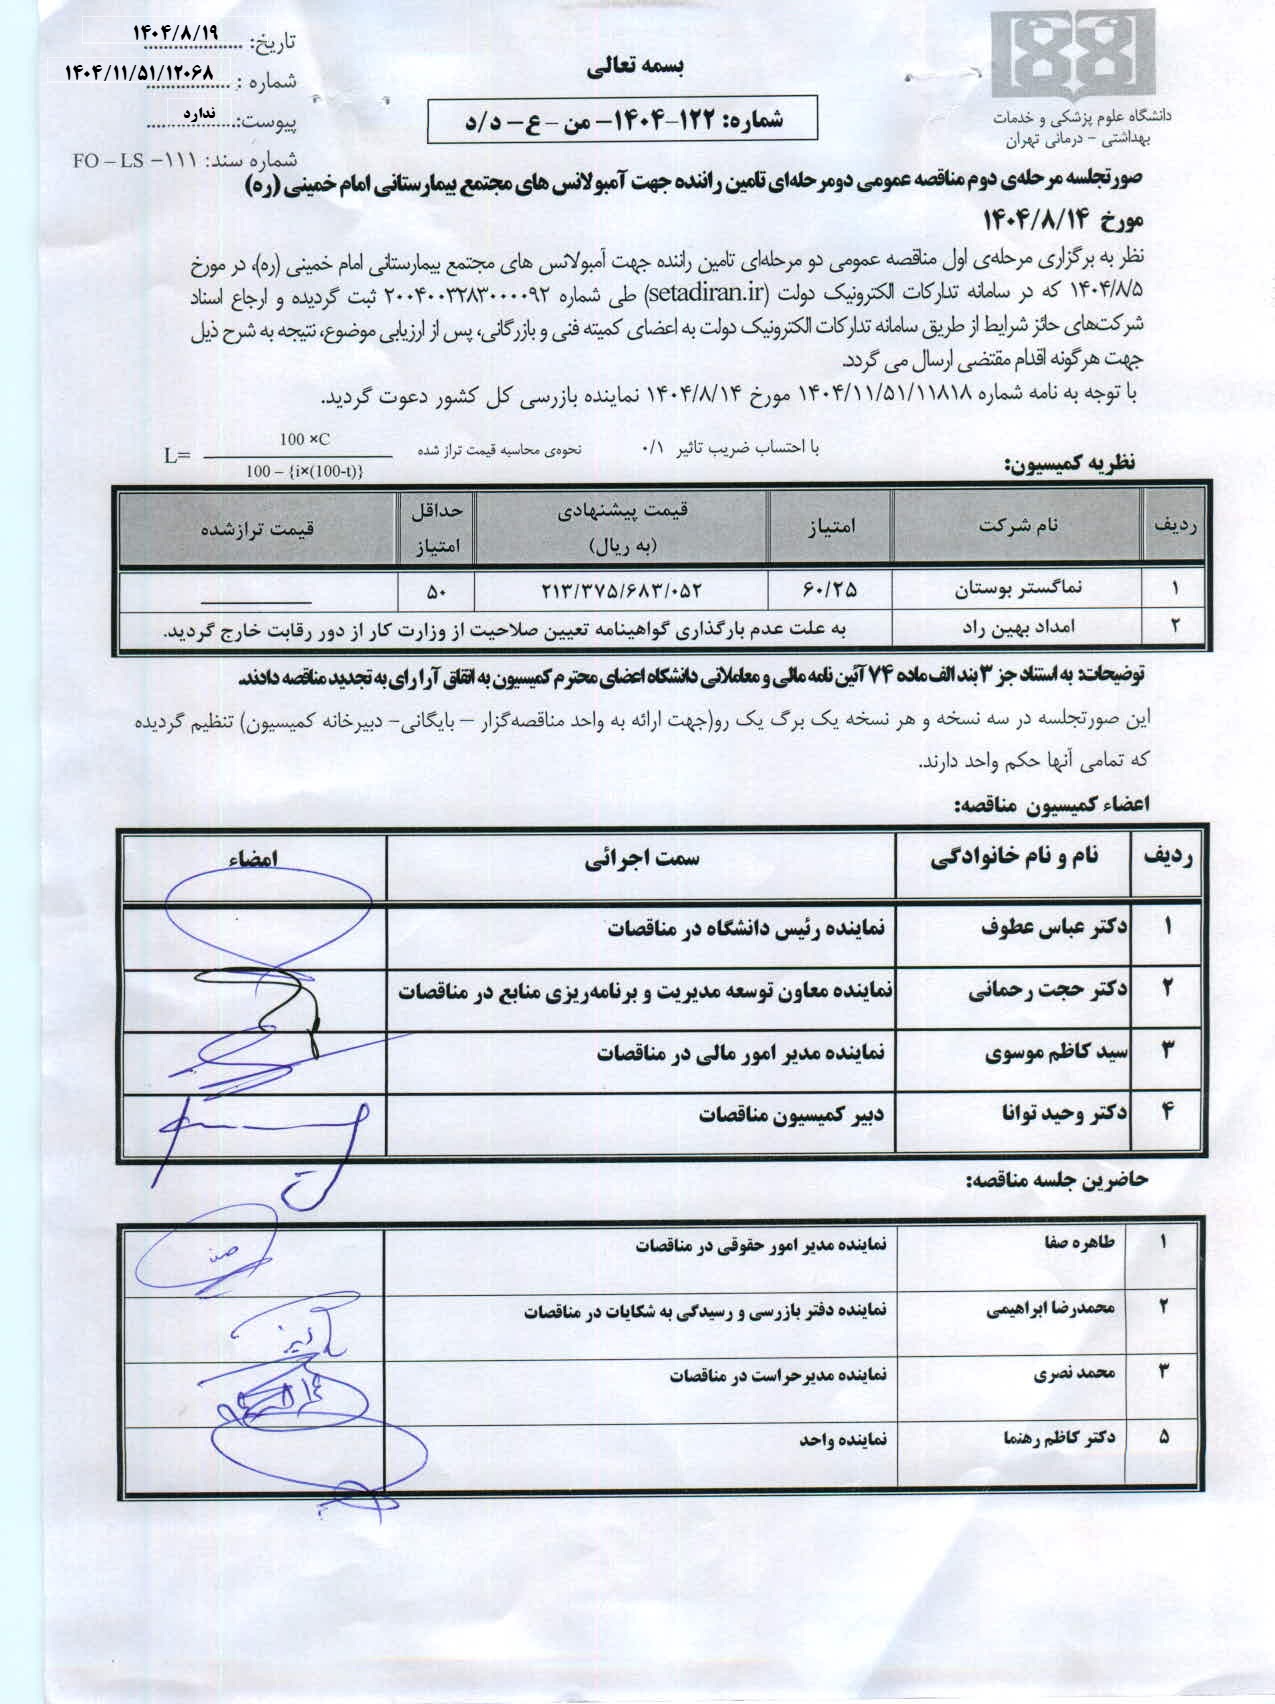 تاریخ: ۱۴۰۴/۸/۱۹
شماره : ۱۴۰۴/۱۱/۵۱/۱۲۰۶۸
پیوست: ندارد
شماره سند: FO – LS –۱۱۱
بسمه تعالی
شماره: ۱۲۲-۱۴۰۴- من – ع- د/د
دانشگاه علوم پزشکی و خدمات
بهداشتی – درمانی تهران
صورتجلسه مرحله‌ی دوم مناقصه عمومی دومرحله‌ای تامین راننده جهت آمبولانس های مجتمع بیمارستانی امام خمینی (ره)
مورخ ۱۴۰۴/۸/۱۴
نظر به برگزاری مرحله‌ی اول مناقصه عمومی دو مرحله‌ای تامین راننده جهت آمبولانس های مجتمع بیمارستانی امام خمینی (ره)، در مورخ
۱۴۰۴/۸/۵ که در سامانه تدارکات الکترونیک دولت (setadiran.ir) طی شماره ۲۰۰۴۰۰۳۲۸۳۰۰۰۰۹۲ ثبت گردیده و ارجاع اسناد
شرکت‌های حائز شرایط از طریق سامانه تدارکات الکترونیک دولت به اعضای کمیته فنی و بازرگانی، پس از ارزیابی موضوع، نتیجه به شرح ذیل
جهت هرگونه اقدام مقتضی ارسال می گردد.
با توجه به نامه شماره ۱۴۰۴/۱۱/۵۱/۱۱۸۱۸ مورخ ۱۴۰۴/۸/۱۴ نماینده بازرسی کل کشور دعوت گردید.
نظریه کمیسیون: با احتساب ضریب تاثیر ۰/۱ نحوه‌ی محاسبه قیمت تراز شده
L= 100 ×C
100 – {i×(100-t)}
ردیف نام شرکت امتیاز قیمت پیشنهادی (به ریال) حداقل امتیاز قیمت ترازشده
۱ نماگستر بوستان ۶۰/۲۵ ۲۱۳/۳۷۵/۶۸۳/۰۵۲ ۵۰
۲ امداد بهین راد به علت عدم بارگذاری گواهینامه تعیین صلاحیت از وزارت کار از دور رقابت خارج گردید.
توضیحات: به استناد جز ۳ بند الف ماده ۷۴ آئین نامه مالی و معاملاتی دانشگاه اعضای محترم کمیسیون به اتفاق آرا رای به تجدید مناقصه دادند.
این صورتجلسه در سه نسخه و هر نسخه یک برگ یک رو(جهت ارائه به واحد مناقصه‌گزار – بایگانی- دبیرخانه کمیسیون) تنظیم گردیده
که تمامی آنها حکم واحد دارند.
اعضاء کمیسیون مناقصه:
ردیف نام و نام خانوادگی سمت اجرائی امضاء
۱ دکتر عباس عطوف نماینده رئیس دانشگاه در مناقصات
۲ دکتر حجت رحمانی نماینده معاون توسعه مدیریت و برنامه‌ریزی منابع در مناقصات
۳ سید کاظم موسوی نماینده مدیر امور مالی در مناقصات
۴ دکتر وحید توانا دبیر کمیسیون مناقصات
حاضرین جلسه مناقصه:
۱ طاهره صفا نماینده مدیر امور حقوقی در مناقصات
۲ محمدرضا ابراهیمی نماینده دفتر بازرسی و رسیدگی به شکایات در مناقصات
۳ محمد نصری نماینده مدیرحراست در مناقصات
۵ دکتر کاظم رهنما نماینده واحد